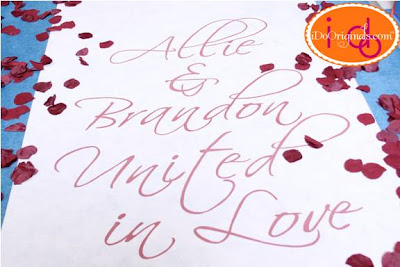 i do
iDoOriginals.com
Allie
&
Brandon
United
in Love